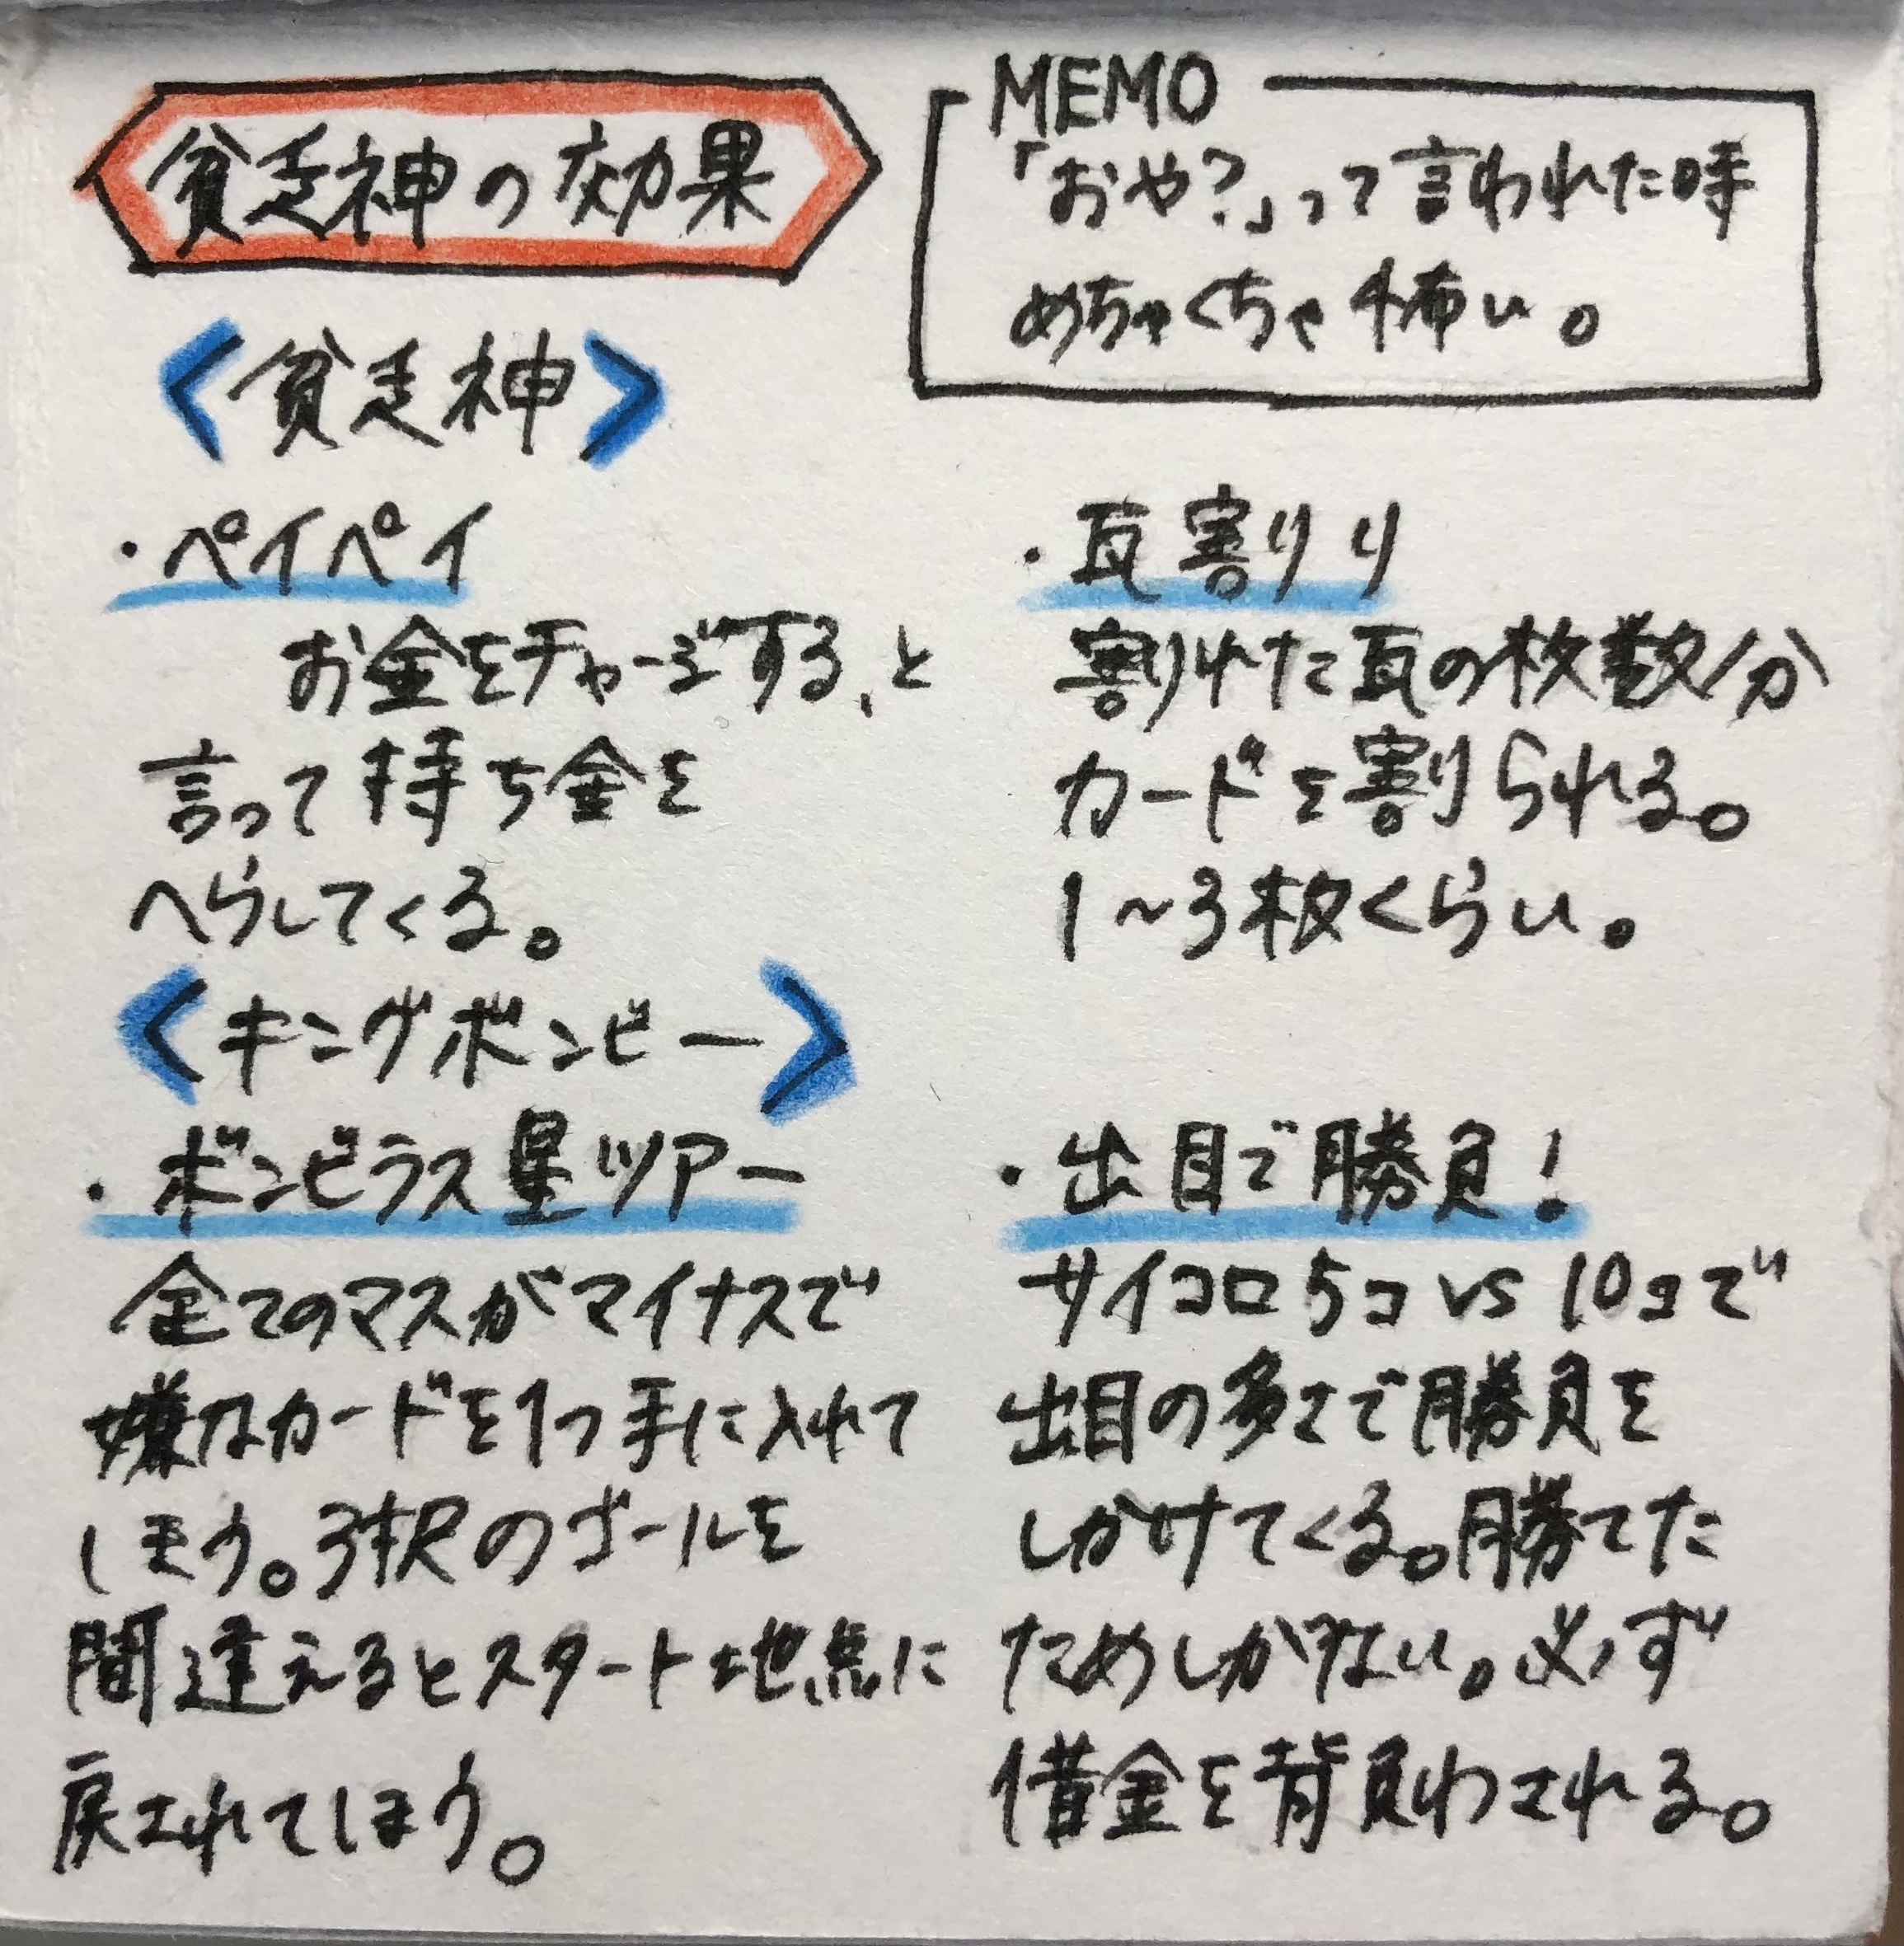 貧乏神の効果
MEMO
「おや?」って言われた時
めちゃくちゃ怖い。
<貧乏神>
・ペイペイ
お金をチャージする、と
言って持ち金を
へらしてくる。
・瓦割り
割れた瓦の枚数分
カードを割られる。
1~3枚くらい。
<キングボンビー>
・ボンビラス星ツアー
全てのマスがマイナスで
嫌なカードを1つ手に入れて
しまう。3択のゴールを
間違えるとスタート地点に
戻されてしまう。
・出目で勝負!
サイコロ5コvs10コで
出目の多さで勝負を
しかけてくる。勝てた
ためしがない。必ず
借金を背負わされる。